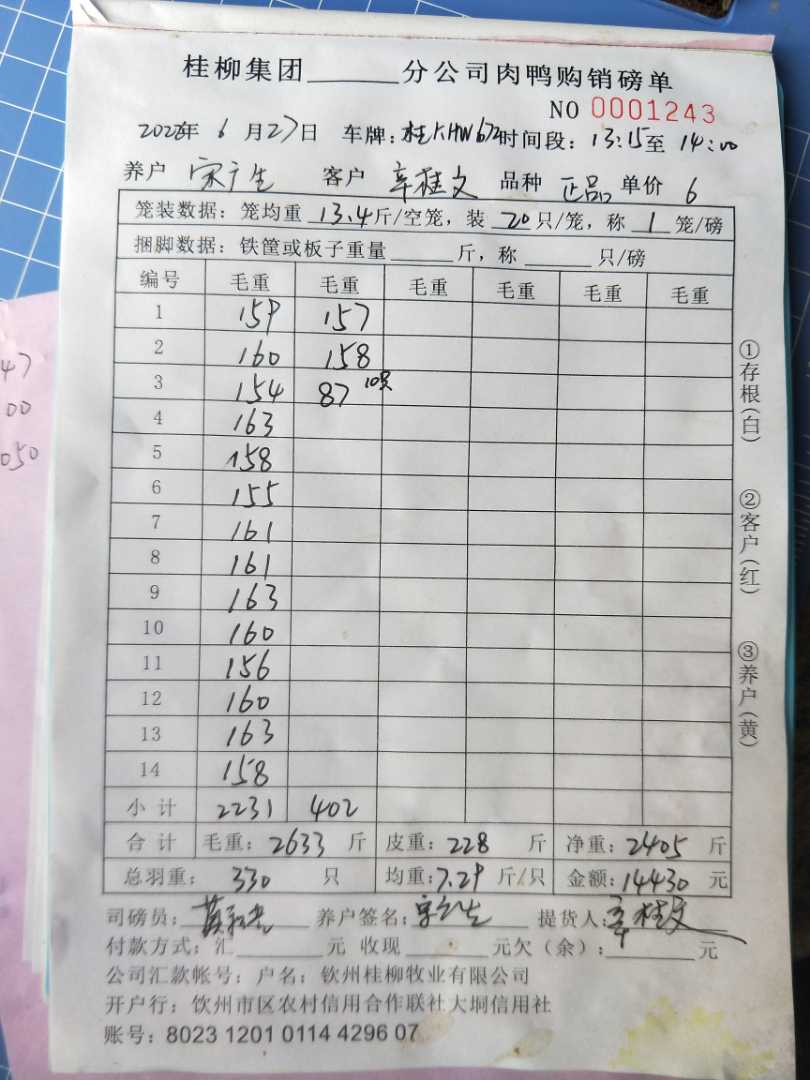 桂柳集团______分公司肉鸭购销磅单
NO 0001243
6月27日 车牌：桂KHW672 时间段：13:15至14:00
养户 宋广生 客户 辛桂文 品种 正品 单价 6
笼装数据：笼均重 13.4斤/空笼，装 20只/笼，称 1 笼/磅
捆脚数据：铁筐或板子重量______斤，称______只/磅
编号 毛重 毛重 毛重 毛重 毛重 毛重
1 159 157
2 160 158
3 154 87 10只
4 163
5 158
6 155
7 161
8 161
9 163
10 160
11 156
12 160
13 163
14 158
小计 2231 402
合计 毛重：2633 斤 皮重：228 斤 净重：2405 斤
总羽重：330 只 均重：7.29 斤/只 金额：14430 元
司磅员： 养户签名：宋广生 提货人：辛桂文
付款方式：汇______元 收现______元欠（余）：______元
公司汇款帐号：户名：钦州桂柳牧业有限公司
开户行：饮州市区农村信用合作联社大垌信用社
账号：8023 1201 0114 4296 07
①存根（白）
②客户（红）
③养户（黄）
47
00
050